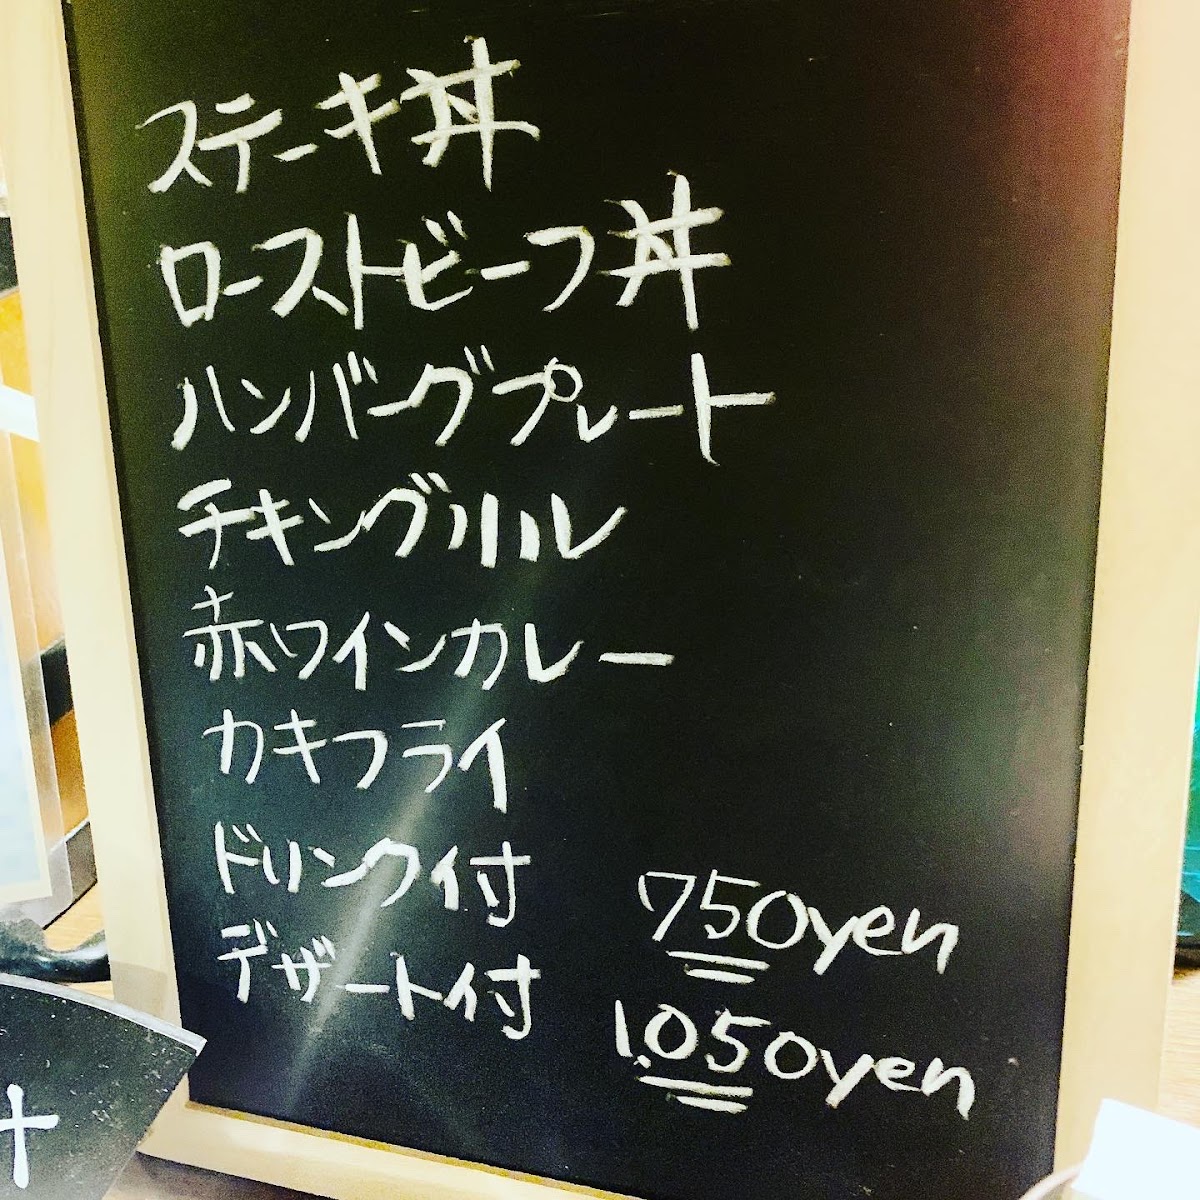 ステーキ丼
ローストビーフ丼
ハンバーグプレート
チキングリル
赤ワインカレー
カキフライ
ドリンク付 750yen
デザート付 1,050yen